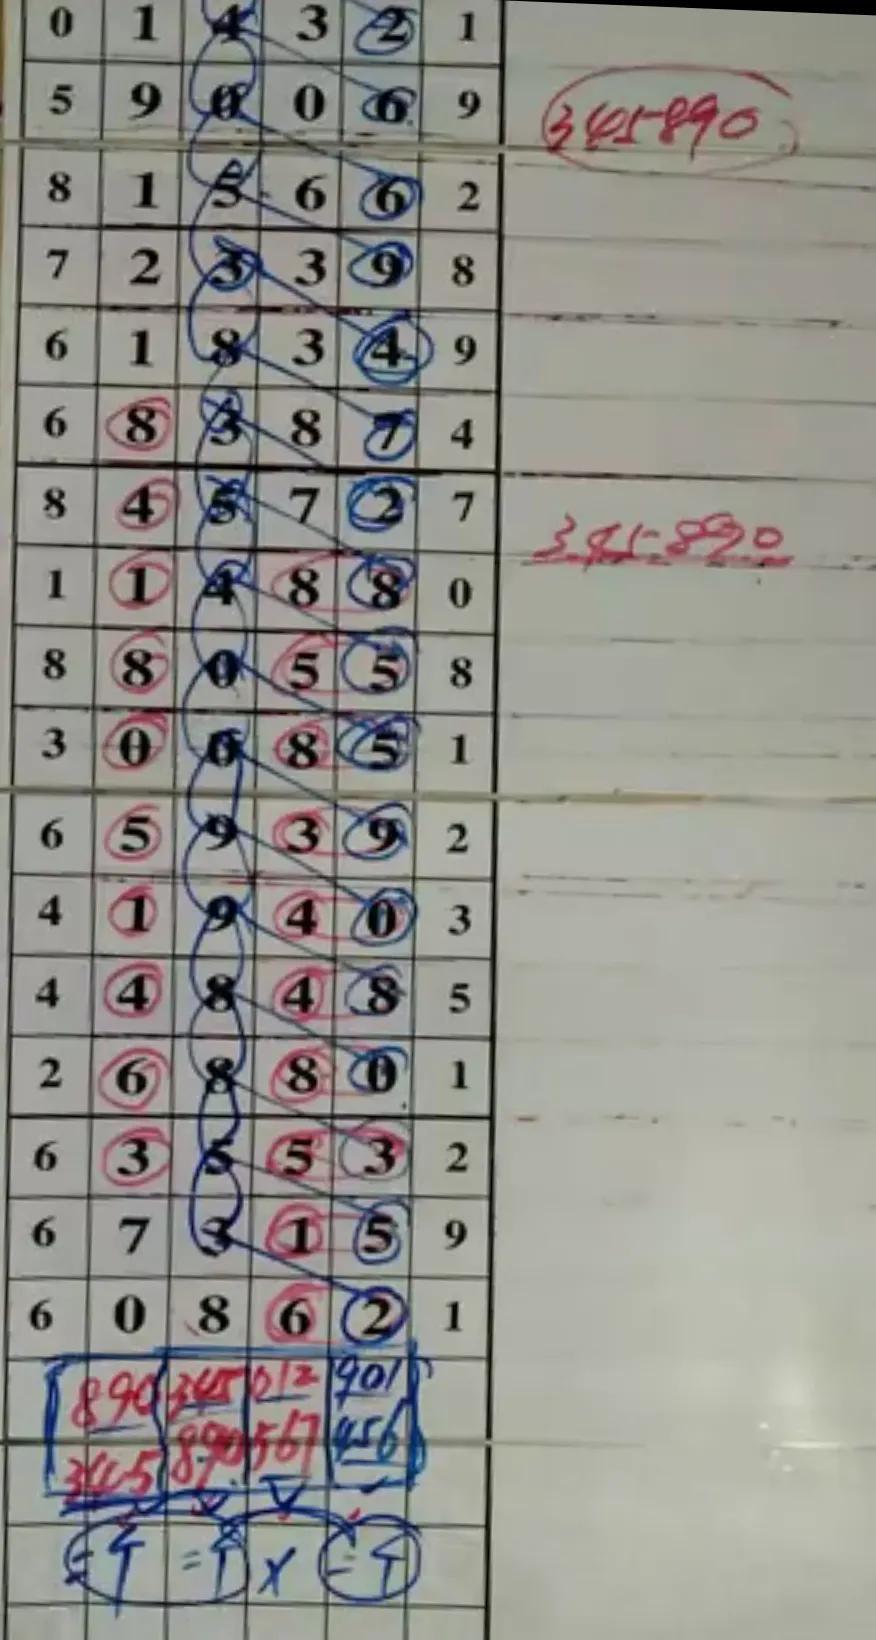 0 1 4 3 2 1
5 9 0 0 6 9
345-890
8 1 5 6 6 2
7 2 3 3 9 8
6 1 8 3 4 9
6 8 3 8 7 4
8 4 5 7 2 7
345-890
1 1 4 8 8 0
8 8 0 5 5 8
3 0 6 8 5 1
6 5 9 3 9 2
4 1 9 4 0 3
4 4 8 4 8 5
2 6 8 8 0 1
6 3 5 5 3 2
6 7 3 1 5 9
6 0 8 6 2 1
890 345 012 901
345 890 567 456
x